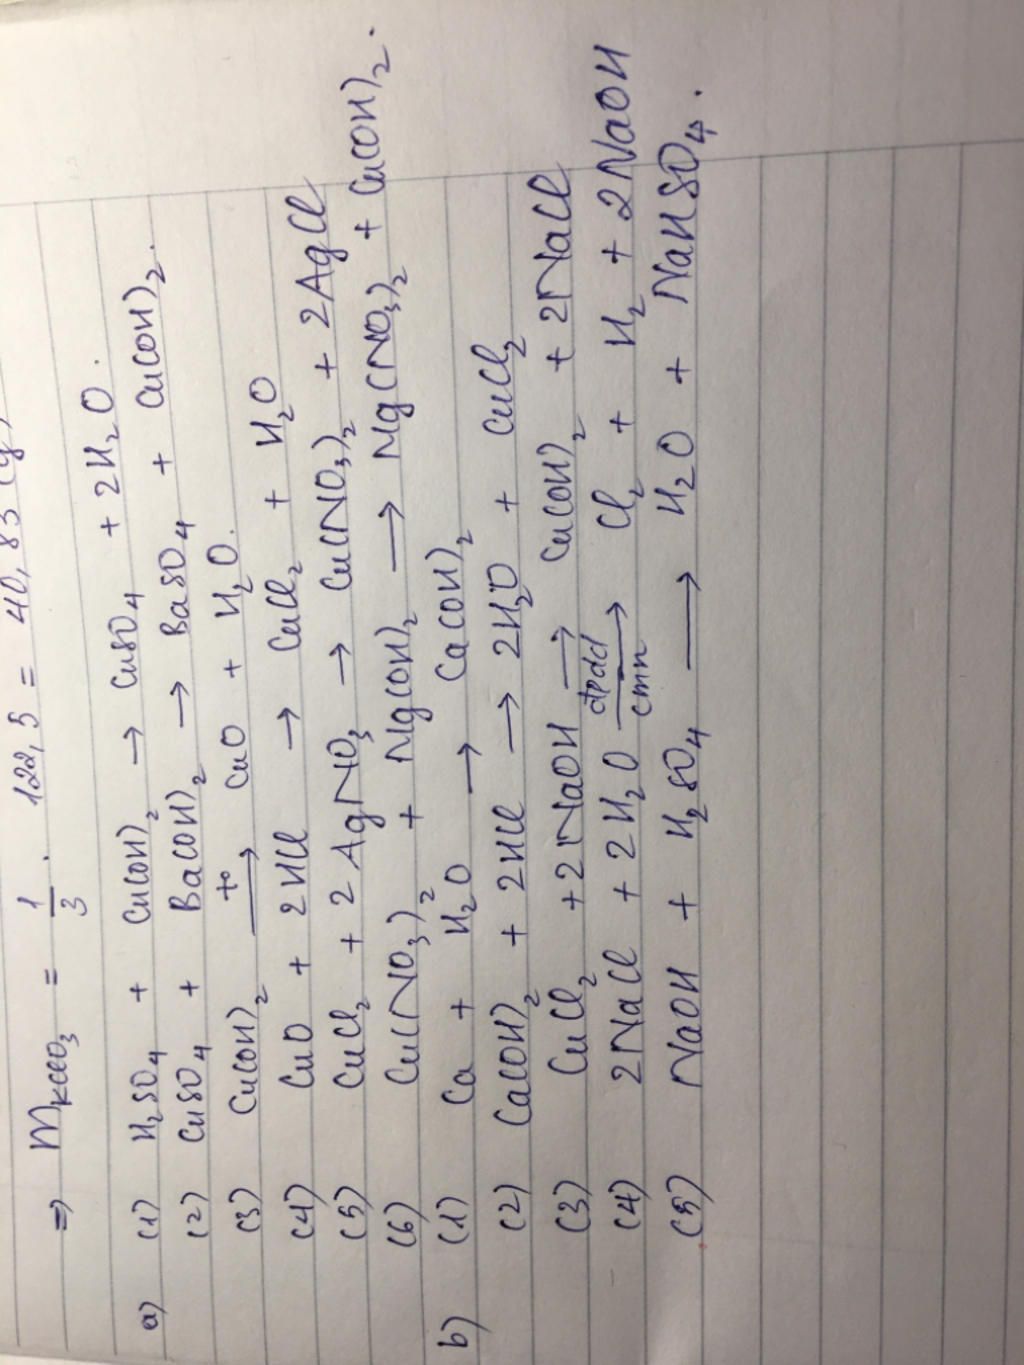 ⇒ mKClO₃ = 1/3 . 122,5 = 40,83 (g)
a) (1) H₂SO₄ + Cu(OH)₂ → CuSO₄ + 2H₂O.
(2) CuSO₄ + Ba(OH)₂ → BaSO₄ + Cu(OH)₂.
(3) Cu(OH)₂ —t°→ CuO + H₂O.
(4) CuO + 2HCl → CuCl₂ + H₂O
(5) CuCl₂ + 2AgNO₃ → Cu(NO₃)₂ + 2AgCl
(6) Cu(NO₃)₂ + Mg(OH)₂ → Mg(NO₃)₂ + Cu(OH)₂.
b) (1) Ca + H₂O → Ca(OH)₂
(2) Ca(OH)₂ + 2HCl → 2H₂O + CuCl₂
(3) CuCl₂ + 2NaOH → Cu(OH)₂ + 2NaCl
(4) 2NaCl + 2H₂O —đpdd/cmn→ Cl₂ + H₂ + 2NaOH
(5) NaOH + H₂SO₄ → H₂O + NaHSO₄.